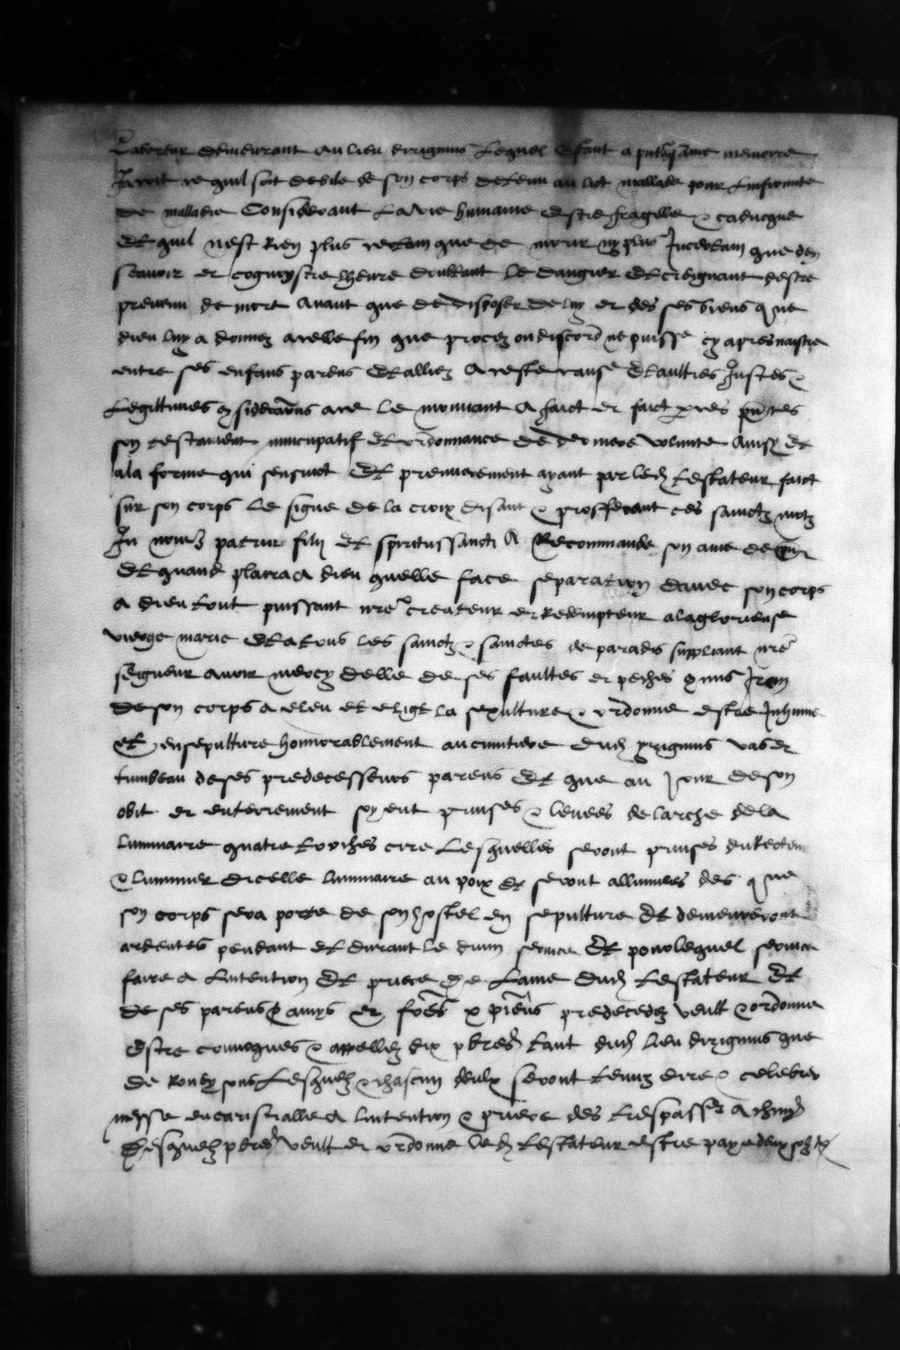 Laboreur demeurant au lieu dirignius Lequel estant a presant en memoire
Ja soit ce quil soit debile de son corps detenu au lict mallade pour Linfirmite
de malladie Considerant La vie humaine estre fragille & caducque
Et quil nest Rien plus certain que de morir ny plus Incertain que den
scavoir et cognoystre lheure doubtant le dangier Et creignant destre
prevenu de mort Avant que de disposer de luy et des ses biens que
dieu luy a donnez a celle fin que procez ou discord ne puisse cy apres naistre
entre ses enfans parens Et alliez A reste cause Et aultres Justes &
Legittimes considerations a ce le mouvant A faict et faict par ces presentes
son testament nuncupatif Et ordonnance de derniere volunte Ainsy Et
a la forme qui sensuict Et premierement ayant par led testateur faict
sur son corps le signe de la croix disant & profferant ces sainctz motz
In nomine patris filii Et spiritussancti A Recommande son ame de
Et quand plaira a dieu quelle face separation davec son corps
a dieu tout puissant nre createur et Redempteur a la glorieuse
vierge marie Et a tous les sainctz & sainctes de paradis suppliant nre
seigneur avoir mercy delle de ses faultes et peches
de son corps a eleu et eligit la sepulture & ordonne estre Inhume
et ensepulture honnorablement au cimitiere dud yrignius vas et
tumbeau de ses predecesseurs parens Et que au Jour de son
obit et enterrement soyent prinses & levees de larche de la
luminaire quatre torches cire Lesquelles seront prinses du Recteur
& luminier dicelle luminaire au poix Et seront allumees des que
son corps sera porte de son hostel en sepulture Et demeureront
ardentes pendant et durant le divin service Et pour lequel service
faire a Lintention Et priere de Lame dud testateur Et
de ses parens & amys predecedez veult & ordonne
estre convoques & appellez dix pbres tant dud lieu dirignius que
de Lesquelz & chascun deulx seront tenuz dire & celebrer
messe a Lintention & priere des trespasses A chascun
Desquelz pbres veult et ordonne led testateur estre paye deux solz tz